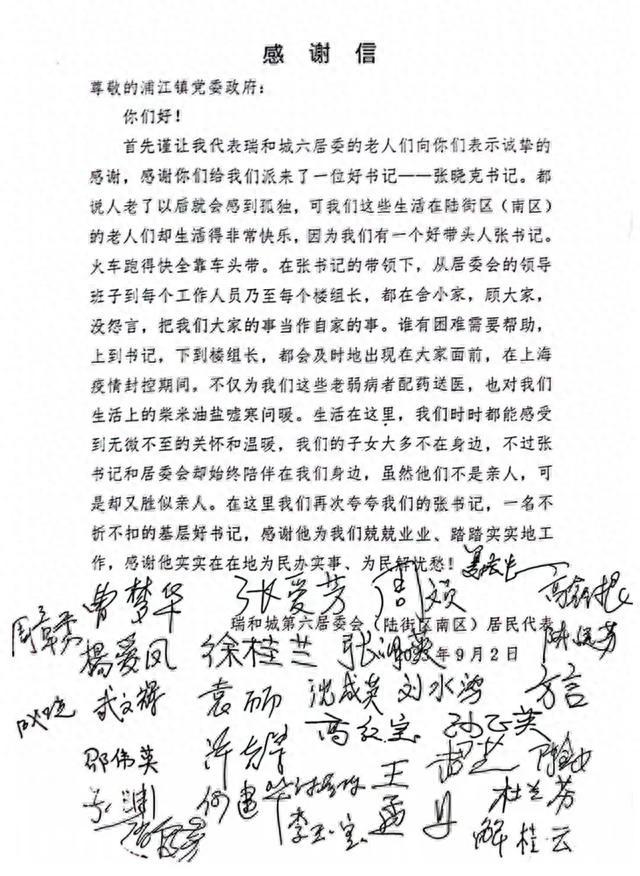 感谢信
尊敬的浦江镇党委政府：
你们好！
首先谨让我代表瑞和城六居委的老人们向你们表示诚挚的
感谢，感谢你们给我们派来了一位好书记——张晓克书记。都
说人老了以后就会感到孤独，可我们这些生活在陆街区（南区）
的老人们却生活得非常快乐，因为我们有一个好带头人张书记。
火车跑得快全靠车头带。在张书记的带领下，从居委会的领导
班子到每个工作人员乃至每个楼组长，都在舍小家，顾大家，
没怨言，把我们大家的事当作自家的事。谁有困难需要帮助，
上到书记，下到楼组长，都会及时地出现在大家面前，在上海
疫情封控期间，不仅为我们这些老弱病者配药送医，也对我们
生活上的柴米油盐嘘寒问暖。生活在这里，我们时时都能感受
到无微不至的关怀和温暖，我们的子女大多不在身边，不过张
书记和居委会却始终陪伴在我们身边，虽然他们不是亲人，可
是却又胜似亲人。在这里我们再次夸夸我们的张书记，一名不
折不扣的基层好书记，感谢他为我们兢兢业业、踏踏实实地工
作，感谢他实实在在地为民办实事、为民解忧愁！
曹梦华 张爱芳
瑞和城第六居委会（陆街区南区）居民代表
杨爱凤 徐桂兰
年9月2日
袁硕 沈成英 刘水鸿 方言
高红宝 孙正英
邵伟英
何建华 王孟丹 杜兰芬
李玉宝 解桂云